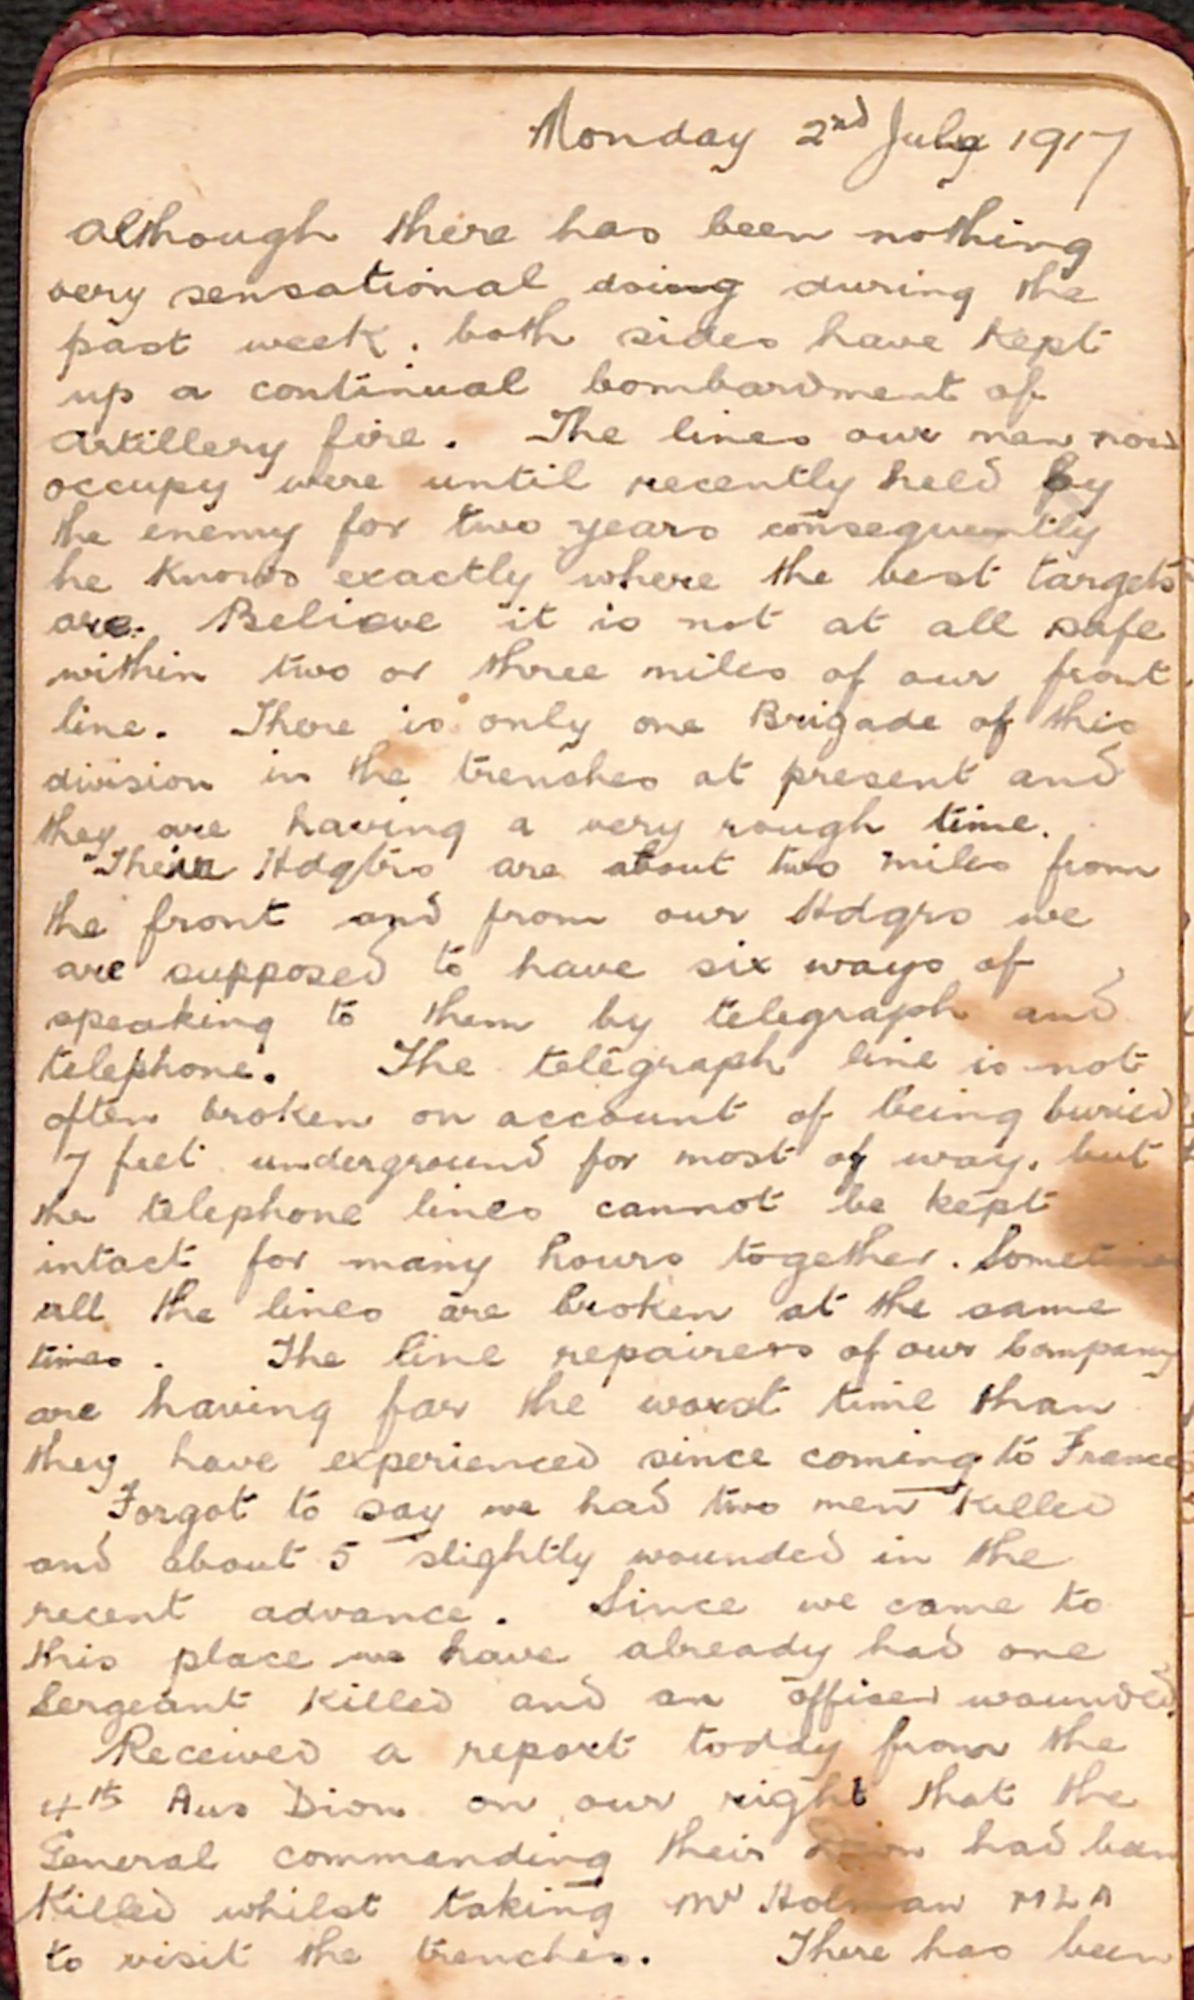 Monday 2nd July 1917
Although there has been nothing
very sensational doing during the
past week, both sides have kept
up a continual bombardment of
artillery fire. The lines our men now
occupy were until recently held by
the enemy for two years consequently
he knows exactly where the best targets
are. Believe it is not at all safe
within two or three miles of our front
line. There is only one Brigade of this
division in the trenches at present and
they are having a very rough time.
Their Hdqtrs are about two miles from
the front and from our Hdqrs we
are supposed to have six ways of
speaking to them by telegraph and
telephone. The telegraph line is not
often broken on account of being buried
7 feet underground for most of way, but
the telephone lines cannot be kept
intact for many hours together. Sometimes
all the lines are broken at the same
times. The line repairers of our Company
are having far the worst time than
they have experienced since coming to France
Forgot to say we had two men killed
and about 5 slightly wounded in the
recent advance. Since we came to
this place we have already had one
Sergeant killed and an officer wounded.
Received a report today from the
4th Aus Divn on our right that the
General commanding their Divn had been
killed whilst taking Mr Holman MLA
to visit the trenches. There has been